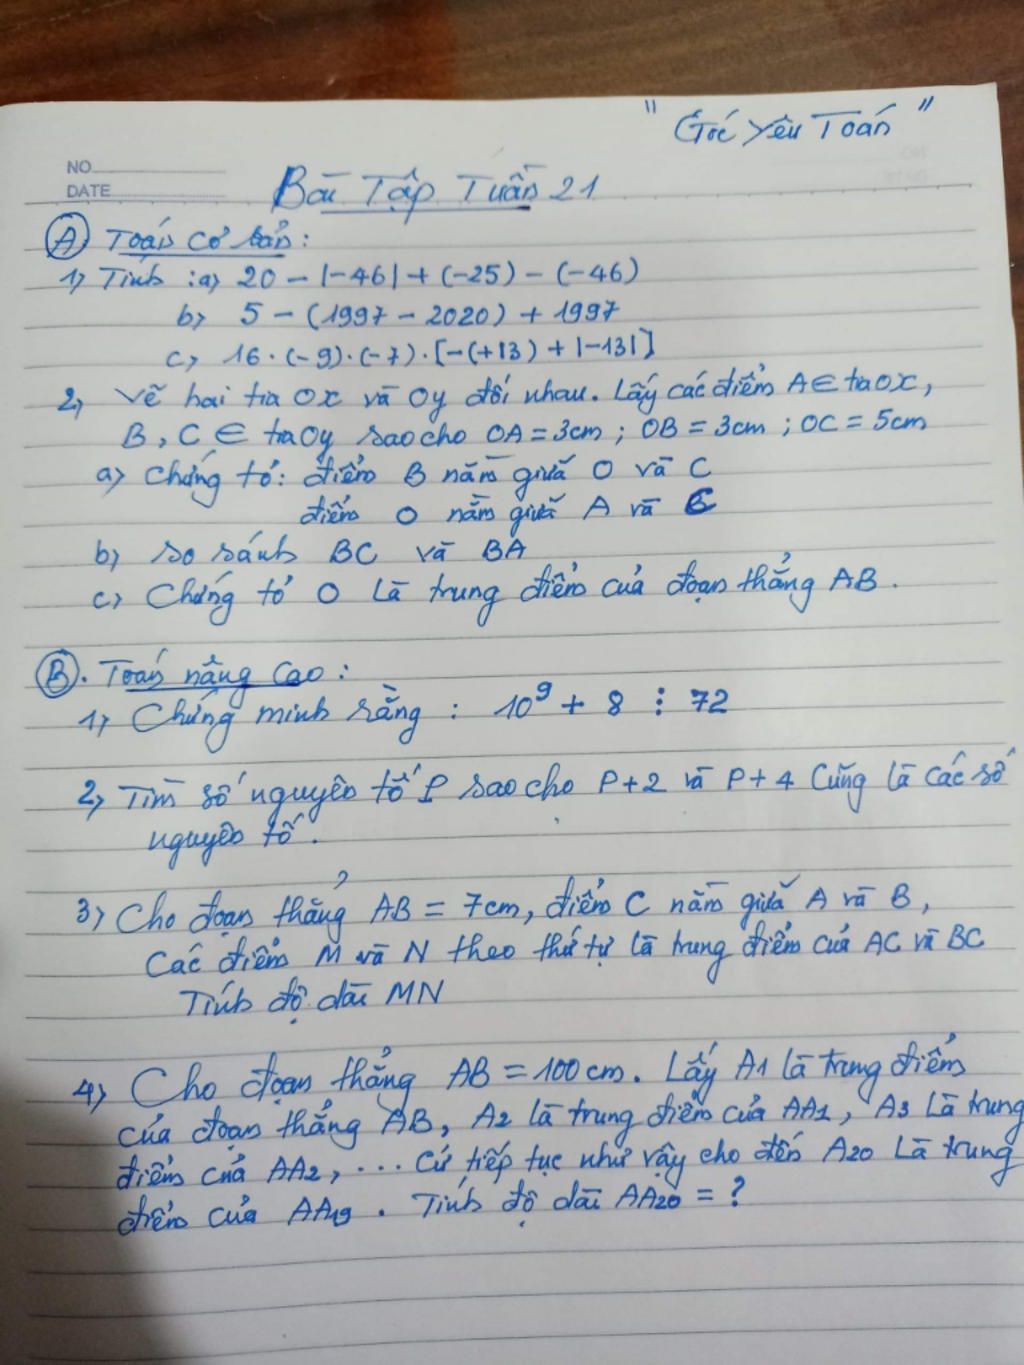 " Góc Yêu Toán "
NO
DATE
Bài Tập Tuần 21
A. Toán cơ bản:
1, Tính : a, 20 - |-46| + (-25) - (-46)
b, 5 - (1997 - 2020) + 1997
c, 16 . (-9) . (-7) . [-(+13) + |-13|]
2, Vẽ hai tia Ox và Oy đối nhau. Lấy các điểm A ∈ tia Ox,
B, C ∈ tia Oy sao cho OA = 3cm ; OB = 3cm ; OC = 5cm
a, Chứng tỏ: điểm B nằm giữa O và C
điểm O nằm giữa A và C
b, so sánh BC và BA
c, Chứng tỏ O Là trung điểm của đoạn thẳng AB.
B. Toán nâng cao :
1, Chứng minh rằng : 10⁹ + 8 ⋮ 72
2, Tìm số nguyên tố P sao cho P+2 và P+4 Cũng là các số
nguyên tố .
3, Cho đoạn thẳng AB = 7cm, điểm C nằm giữa A và B,
Các điểm M và N theo thứ tự là trung điểm của AC và BC
Tính độ dài MN
4, Cho đoạn thẳng AB = 100 cm. Lấy A1 là trung điểm
của đoạn thẳng AB, A2 là trung điểm của AA1, A3 Là trung
điểm của AA2, ... Cứ tiếp tục như vậy cho đến A20 Là trung
điểm của AA19 . Tính độ dài AA20 = ?